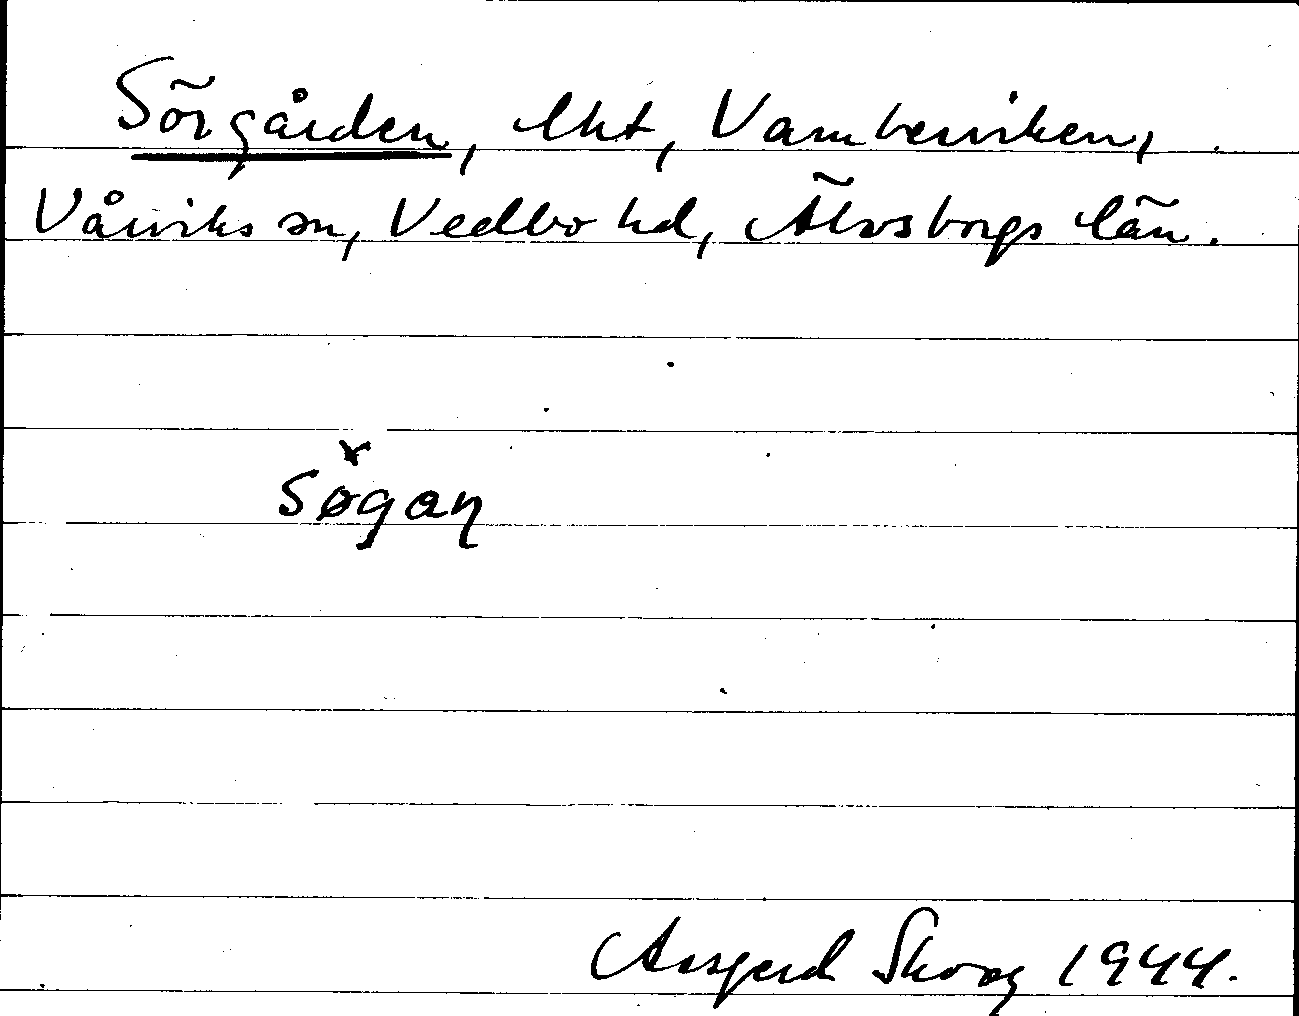 Sörgården, lht, Vambersviken,
Vårviks sn, Vedbo hd, Älvsborgs län.
søgaŋ
Assgerd Skoog 1944.